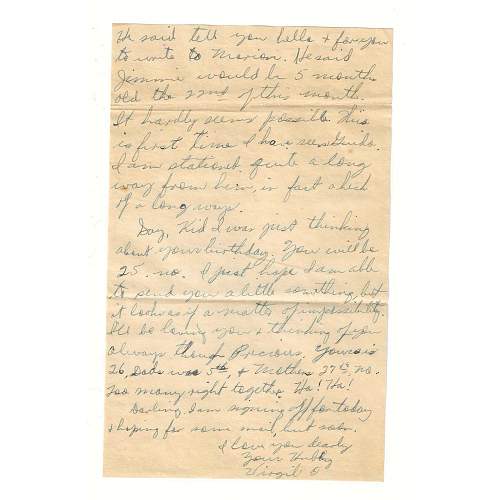 He said tell you hello + for you
to write to Marion. He said
Jimmie would be 5 months
old the 22nd of this month.
It hardly seems possible. This
is first time I have seen Guido.
I am stationed quite a long
way from him, in fact a heck
of a long ways.
Say, Kid I was just thinking
about your birthday. You will be
25. no. I just hope I am able
to send you a little something, but
it looks as if a matter of impossibility.
I'll be loving you + thinking of you
always though Precious. Yours is
26, Dads was 5th, + Mothers 27th, no.
too many right together. Ha! Ha!
Darling, I am signing off for today
+ hoping for some mail, but soon.
I love you dearly
Your Hubby
Virgil O